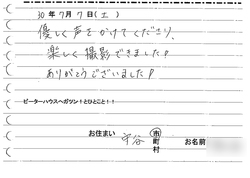 30年7月7日(土)
優しく声をかけてくださり、
楽しく撮影できました!
ありがとうございました!
ピーターハウスへガツン!とひとこと!!
お住まい 守谷 市町村 お名前